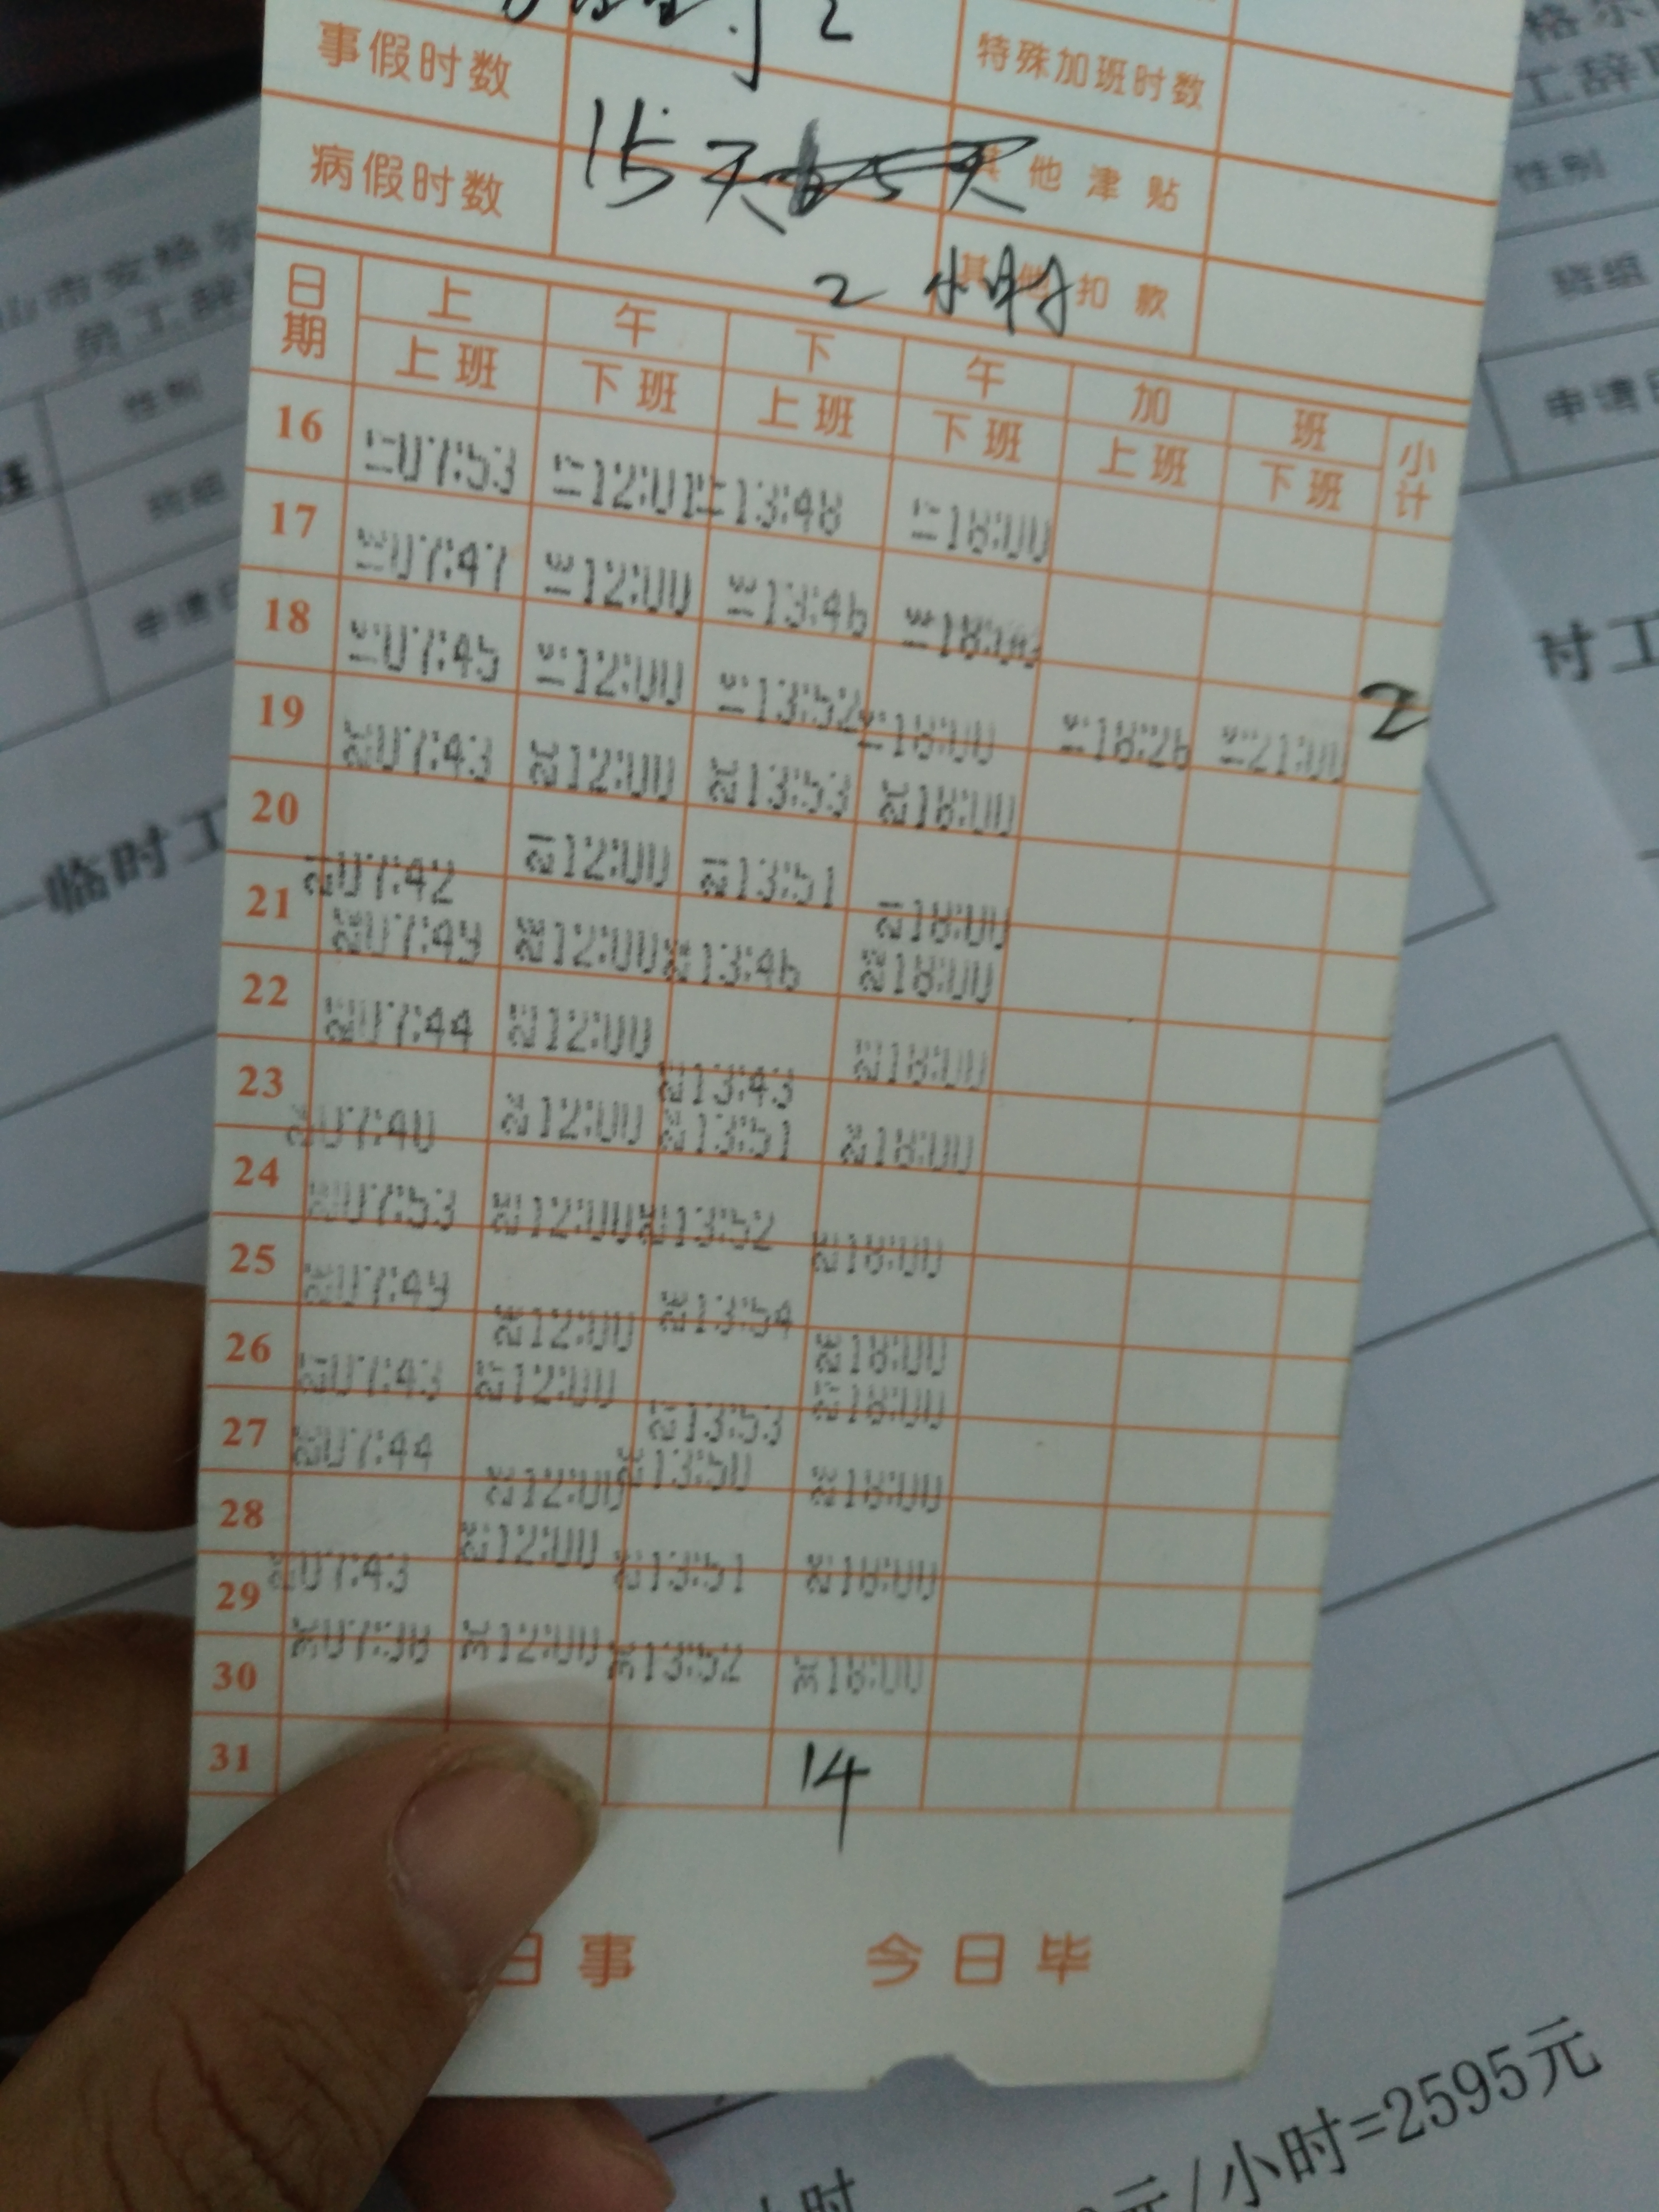 2
事假时数 特殊加班时数
15天
病假时数 其他津贴
2小时
其他扣款
日期 上午 下午 加班 小计
上班 下班 上班 下班 上班 下班
16 07:53 12:01 13:48 18:00
17 07:47 12:00 13:46
18 07:45 12:00 13:52 18:00 18:26 21:00 2
19 07:43 12:00 13:53 18:00
20 07:42 12:00 13:51 18:00
21 07:49 12:00 13:46 18:00
22 07:44 12:00 13:43 18:00
23 07:40 12:00 13:51 18:00
24 07:53 12:00 13:52 18:00
25 07:49 12:00 13:54 18:00
26 07:43 12:00 13:53 18:00
27 07:44 12:00 13:50 18:00
28 07:43 12:00 13:51 18:00
29 07:38 12:00 13:52 18:00
30
31 14
日事 今日毕
山市安格尔
员工辞
性别
班组
申请日
临时工
格尔
工辞职
性别
班组
申请日
时工
小时
元/小时=2595元